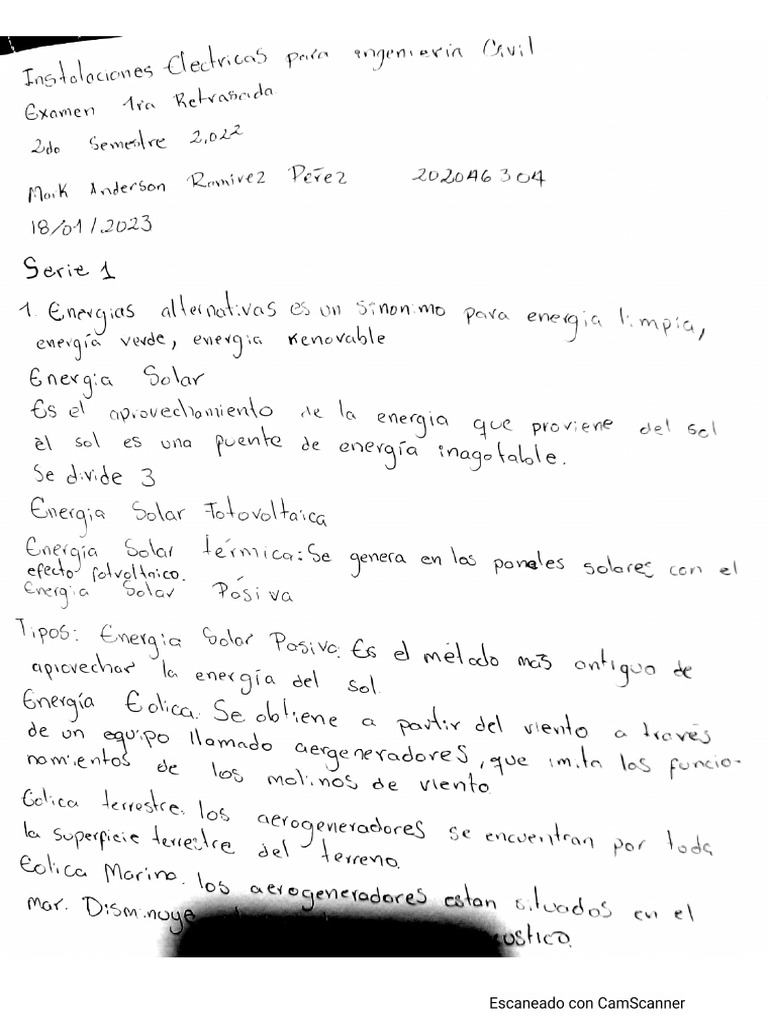 Instalaciones Electricas para ingenieria Civil
Examen 1ra Retrasada
2do Semestre 2,022
Mark Anderson Ramirez Pérez 202046304
18/01/2023
Serie 1
1. Energias alternativas es un sinonimo para energia limpia,
energía verde, energia renovable
Energia Solar
Es el aprovechamiento de la energia que proviene del sol
el sol es una fuente de energía inagotable.
Se divide 3
Energia Solar Fotovoltaica
Energía Solar térmica: Se genera en los paneles solares con el
efecto fotvoltnico.
Energia Solar Pásiva
Tipos: Energia Solar Pasiva: Es el método mas antiguo de
aprovechar la energía del sol.
Energía Eolica. Se obtiene a partir del viento a través
de un equipo llamado aergeneradores, que imita los funcio-
namientos de los molinos de viento
Eolica terrestre: los aerogeneradores se encuentran por toda
la superficie terrestre del terreno.
Eolica Marina. los aerogeneradores estan situados en el
mar. Disminuye
Escaneado con CamScanner